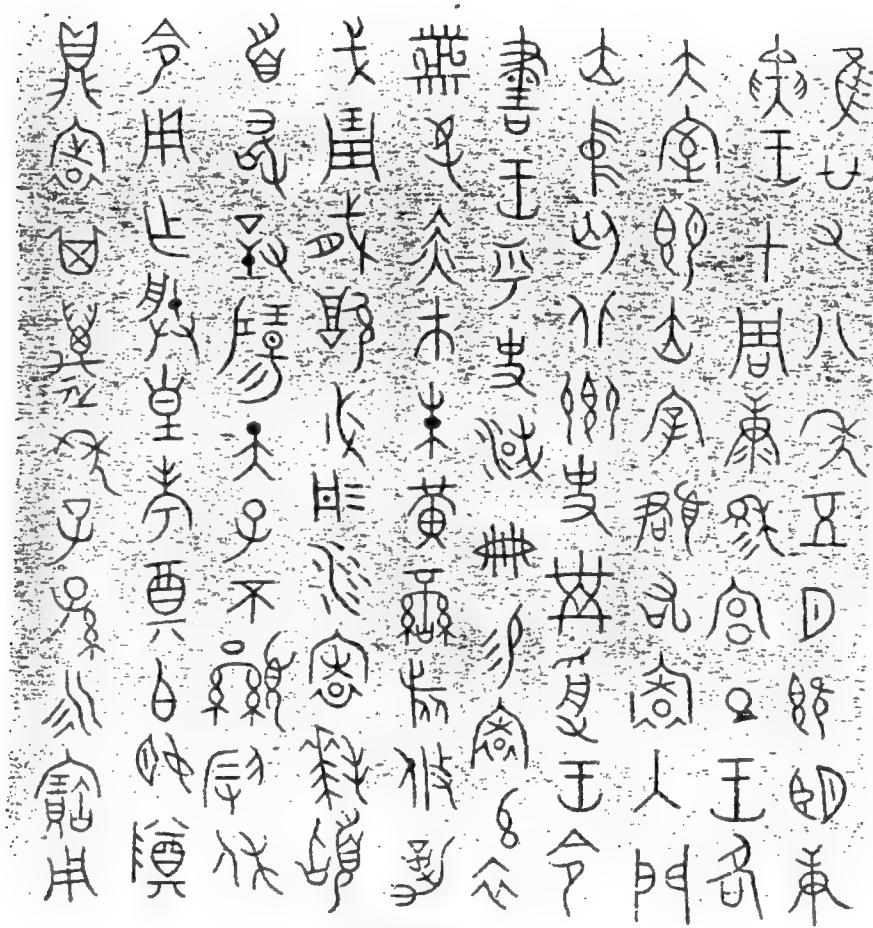 隹廿又八年五月既望庚
寅王才周康穆宮旦王各
大室即立宰頵右寰入門
立中廷北鄉史黹受王令
書王乎史淢冊易寰玄衣
黹屯赤巿朱黃䜌旂攸勒
戈琱胾厚必彤沙寰拜𩒨
首敢對揚天子不顯叚休
令用乍朕皇考奠白姬尊
鼎寰其萬年子孫永寶用